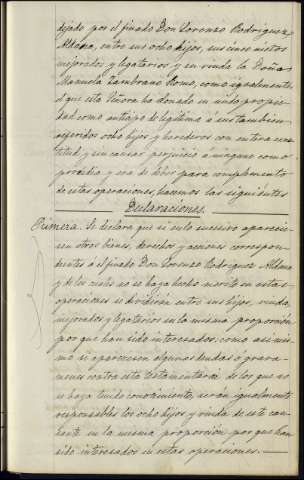 dejado por el finado Don Lorenzo Rodriguez
Aldana, entre sus ocho hijos, sus cinco nietos
mejorados y legatarios y su viuda la Doña
Manuela Zambrano Romo, como igualmente
el que esta Señora ha donado en nudo propie-
dad como anticipo de legitima á sus tambien
referidos ocho hijos y herederos con entera exac-
titud y sin causar perjuicio á ninguno como
procedia y era de deber para complemento
de estas operaciones, hacemos las siguientes
Declaraciones.
Primera. Se declara que si en lo sucesivo aparecie-
sen otros bienes, derechos y acciones correspon-
dientes á el finado Don Lorenzo Rodriguez Aldana
y de los cuales no se haya hecho merito en estas
operaciones se dividirán entre sus hijos, viuda,
mejorados y legatarios en la misma proporcion
por que han sido interesados; como asi mis-
mo si apareciesen algunas deudas ó grava-
menes contra esta testamentaria de los que no
se haya tenido conocimiento, serán igualmente
responsables los ocho hijos y viuda de este cau-
sante en la misma proporcion por que han
sido interesados en estas operaciones.